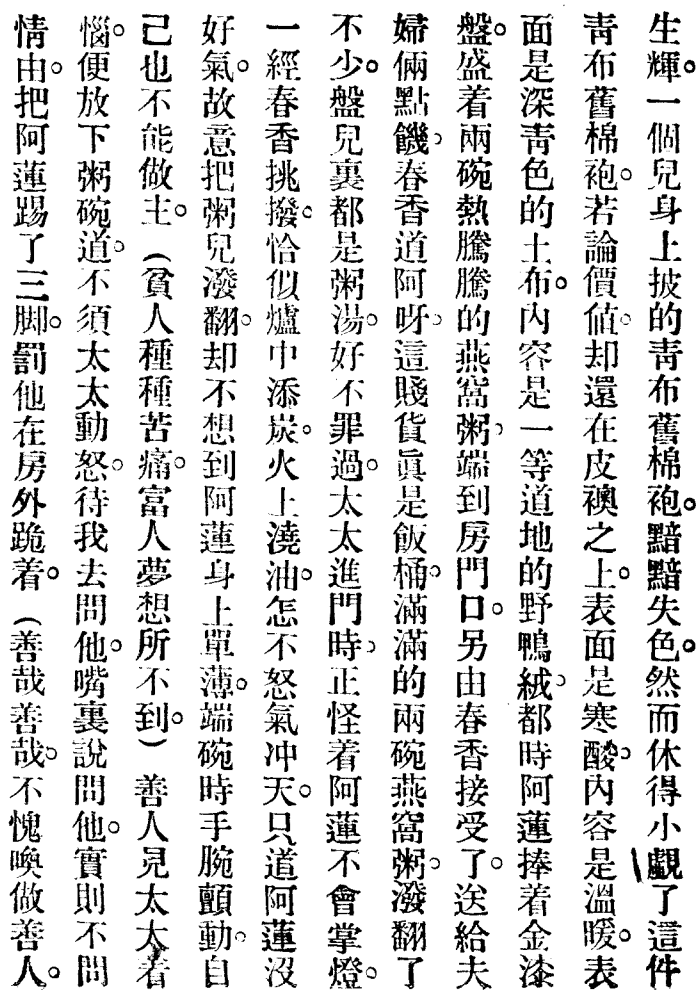 生輝。一個兒身上披的靑布舊棉袍。黯黯失色。然而休得小覷了這件
靑布舊棉袍。若論價値。却還在皮襖之上。表面是寒酸。內容是溫暖。表
面是深靑色的土布。內容是一等道地的野鴨絨。都時阿蓮捧着金漆
盤。盛着兩碗熱騰騰的燕窩粥。端到房門口。另由春香接受了。送給夫
婦倆點饑。春香道阿呀。這賤貨眞是飯桶。滿滿的兩碗燕窩粥。潑翻了
不少。盤兒裏都是粥湯。好不罪過。太太進門時。正怪着阿蓮不會掌燈。
一經春香挑撥。恰似爐中添炭。火上澆油。怎不怒氣冲天。只道阿蓮沒
好氣。故意把粥兒潑翻。却不想到阿蓮身上單薄。端碗時手腕顫動。自
己也不能做主。（貧人種種苦痛。富人夢想所不到。）善人見太太着
惱。便放下粥碗道。不須太太動怒。待我去問他。嘴裏說問他。實則不問
情由。把阿蓮踢了三脚。罰他在房外跪着。（善哉善哉。不愧喚做善人。